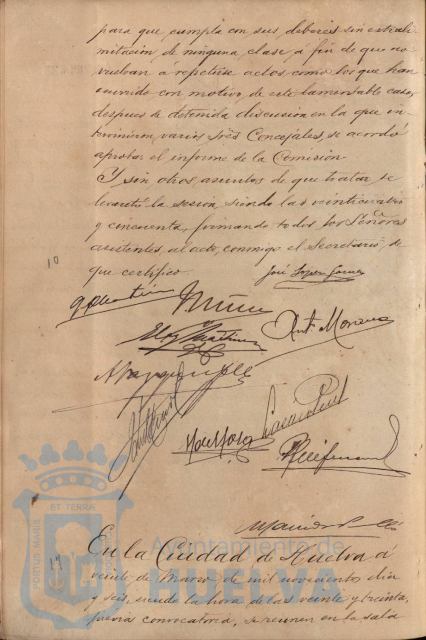 para que cumpla con sus deberes sin extrali-
mitación de ninguna clase, a fin de que no
vuelvan á repetirse actos como los que han
ocurrido con motivo de este lamentable caso,
despues de detenida discusion en la que in-
tervinieron varios Sres Concejales, se acordó
aprobar el informe de la Comisión.
Y sin otros asuntos de que tratar se
levantó la sesión siendo las veinticuatro
y cincuenta, firmando todos los Señores
asistentes al acto, conmigo el Secretario, de
que certifico.
José Lopez Gomez
10
Ant. Moreno
Eloy Martinez
ET TERRA
PORTUS MARIS
Ayuntamiento de
HUELVA
En la Ciudad de Huelva á
veinte de Marzo de mil novecientos diez
y seis, siendo la hora de las veinte y treinta,
previa convocatoria, se reunen en la sala